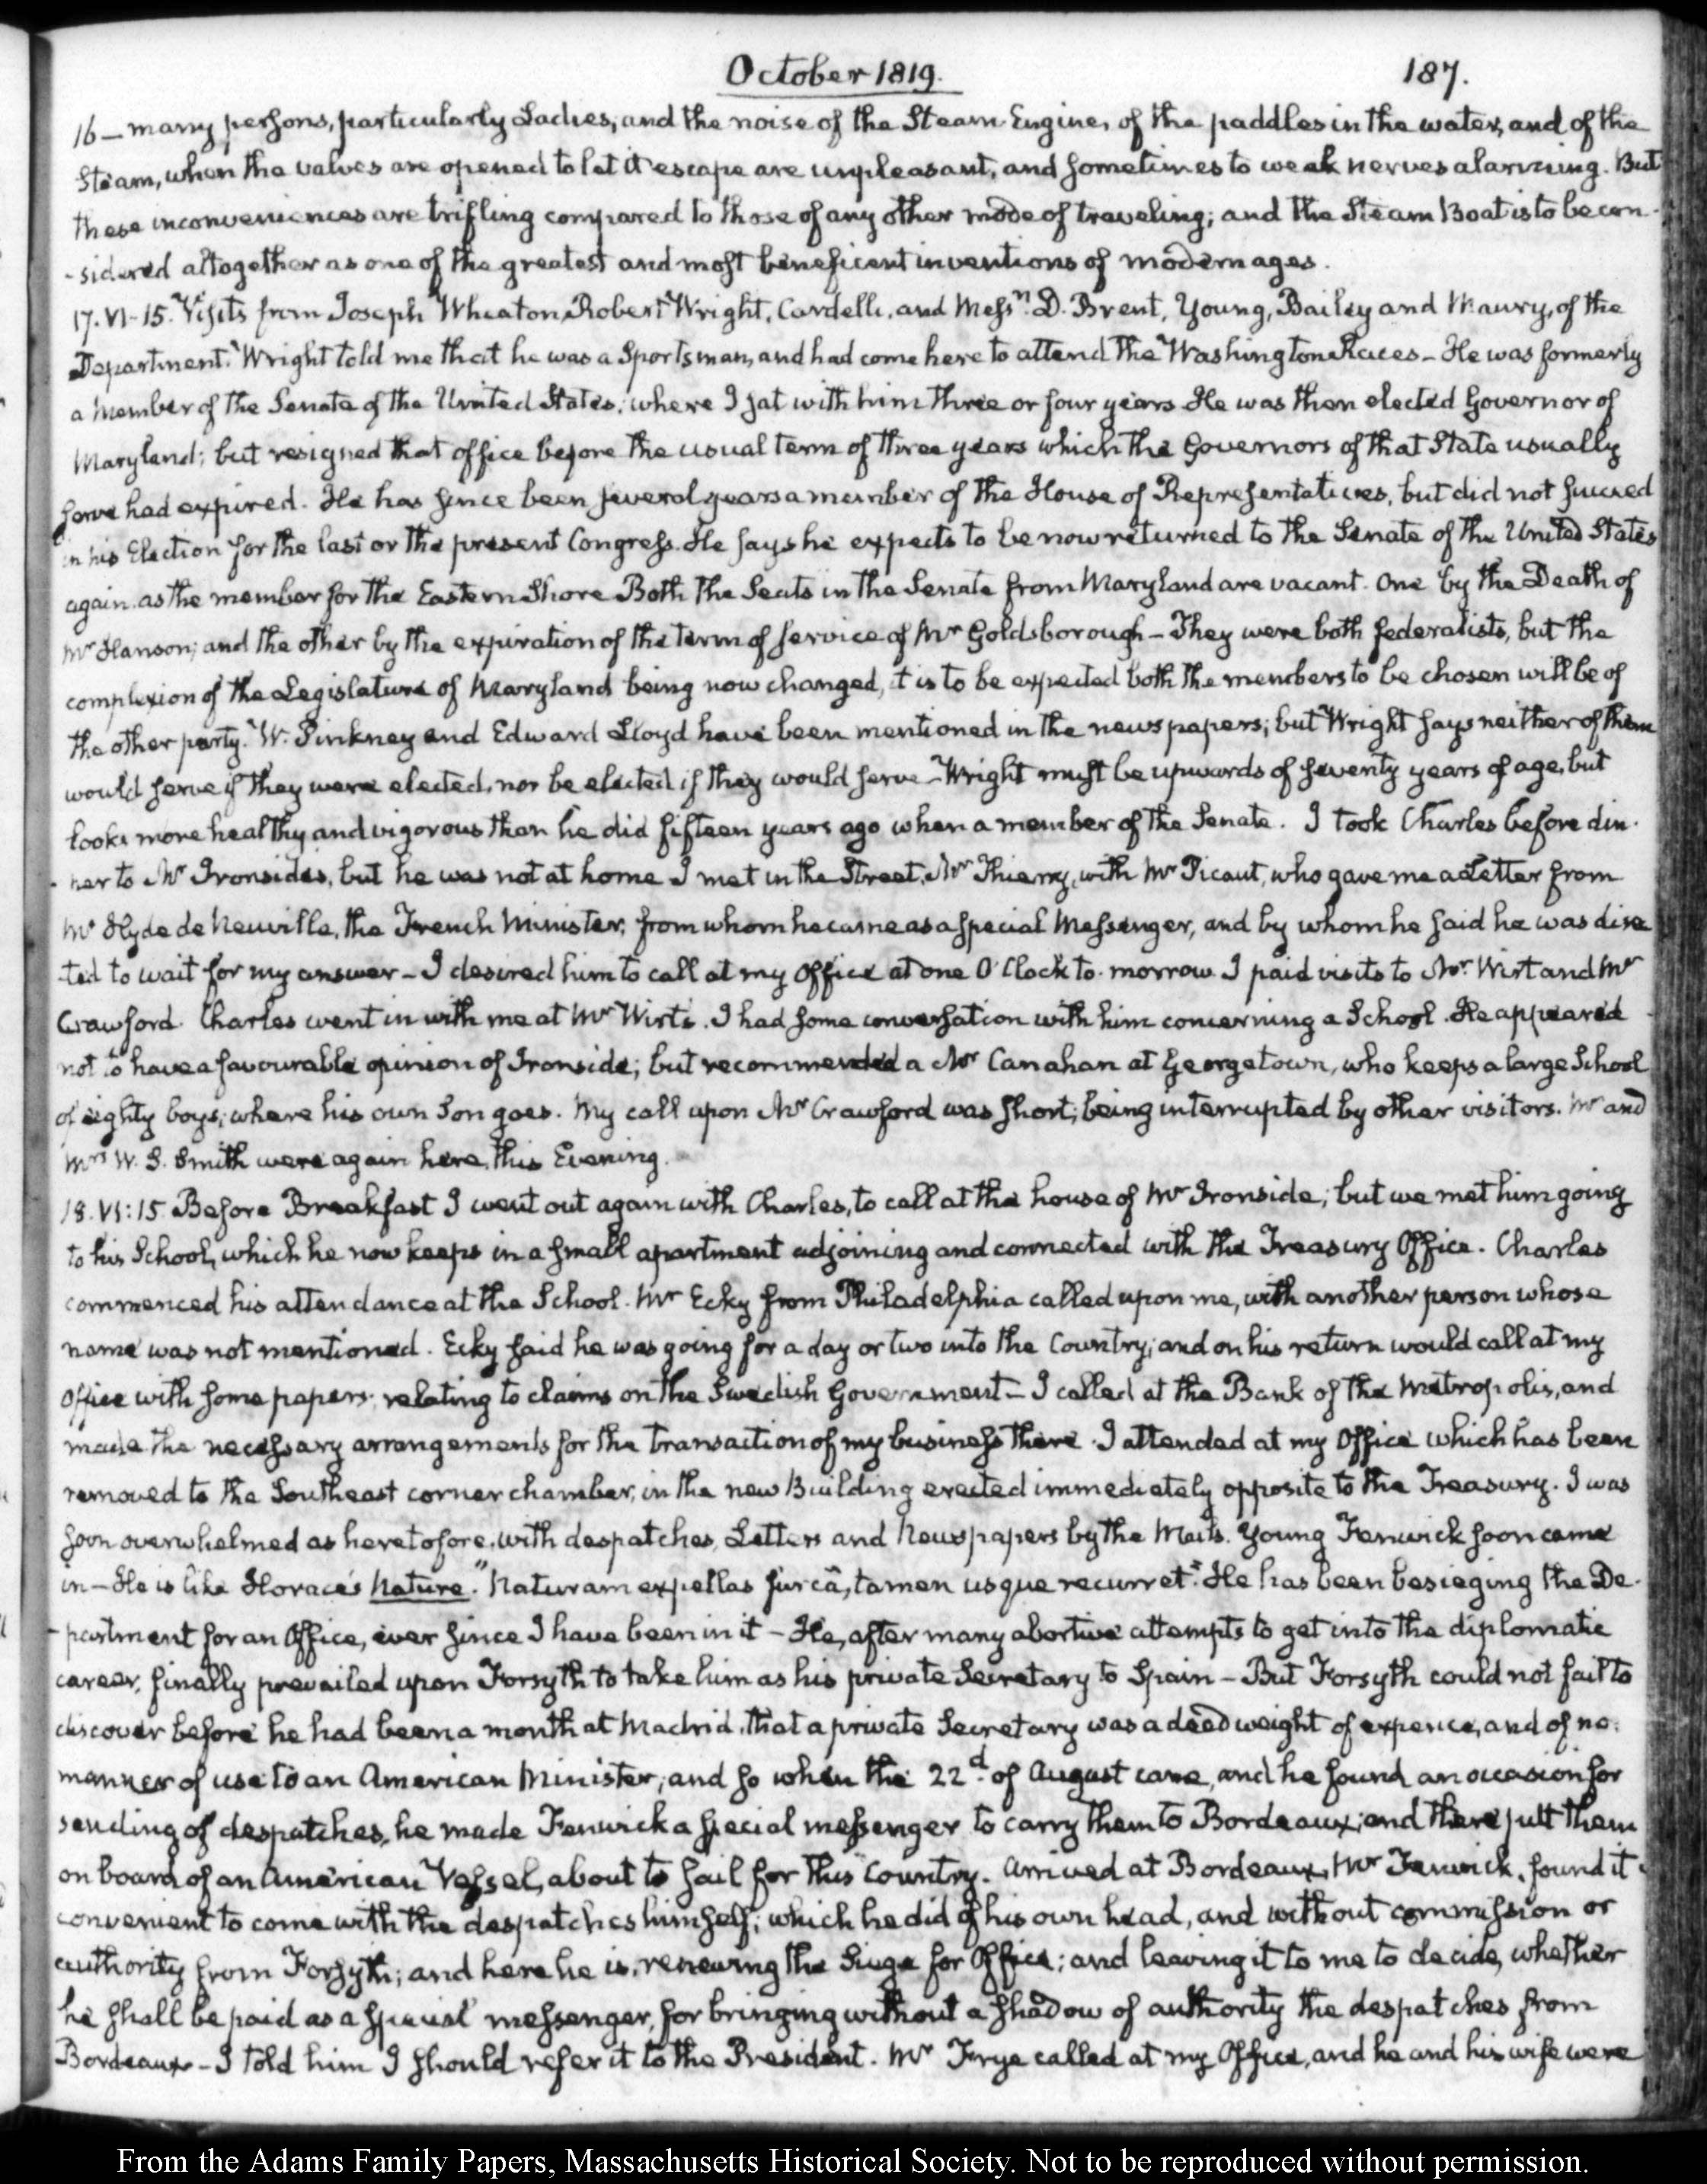 October 1819. 187.
16 — many persons, particularly Ladies, and the noise of the Steam Engine, of the paddles in the water, and of the
Steam, when the valves are opened to let it escape are unpleasant, and sometimes to weak nerves alarming. But
these inconveniences are trifling compared to those of any other mode of traveling; and the Steam Boat is to be con-
-sidered altogether as one of the greatest and most beneficent inventions of modern ages.
17. VI-15. Visits from Joseph Wheaton, Robert Wright, Cardelli, and Messrs. D. Brent, Young, Bailey and Maury, of the
Department. Wright told me that he was a Sportsman, and had come here to attend the Washington Races — He was formerly
a Member of the Senate of the United States; where I sat with him three or four years He was then elected Governor of
Maryland; but resigned that office before the usual term of three years which the Governors of that State usually
serve had expired. He has since been several years a member of the House of Representatives, but did not succeed
in his Election for the last or the present Congress. He says he expects to be now returned to the Senate of the United States
again, as the member for the Eastern Shore Both the Seats in the Senate from Maryland are vacant. One by the Death of
Mr Hanson; and the other by the expiration of the term of service of Mr Goldsborough — They were both federalists, but the
complexion of the Legislature of Maryland being now changed, it is to be expected both the members to be chosen will be of
the other party. W. Pinkney and Edward Lloyd have been mentioned in the newspapers; but Wright says neither of them
would serve if they were elected, nor be elected if they would serve — Wright must be upwards of seventy years of age, but
looks more healthy and vigorous than he did fifteen years ago when a member of the Senate. I took Charles before din-
-ner to Mr Ironsides, but he was not at home I met in the Street, Mr Thierry, with Mr Picaut, who gave me a Letter from
Mr Hyde de Neuville, the French Minister; from whom he came as a special Messenger, and by whom he said he was direc
-ted to wait for my answer — I desired him to call at my Office at one O'Clock to-morrow. I paid visits to Mr. Wirt and Mr
Crawford. Charles went in with me at Mr Wirt's. I had some conversation with him concerning a School. He appeared
not to have a favourable opinion of Ironside; but recommended a Mr Canahan at Georgetown, who keeps a large School
of eighty boys; where his own Son goes. My call upon Mr Crawford was short; being interrupted by other visitors. Mr and
Mrs W. S. Smith were again here, this Evening.
18. VI:15. Before Breakfast I went out again with Charles, to call at the house of Mr Ironside; but we met him going
to his School, which he now keeps in a small apartment adjoining and connected with the Treasury Office. Charles
commenced his attendance at the School. Mr Ecky from Philadelphia called upon me, with another person whose
name was not mentioned. Ecky said he was going for a day or two into the Country; and on his return would call at my
Office with some papers, relating to claims on the Swedish Government — I called at the Bank of the Metropolis, and
made the necessary arrangements for the transaction of my business there. I attended at my Office which has been
removed to the Southeast corner chamber, in the new Building erected immediately opposite to the Treasury. I was
soon overwhelmed as heretofore, with despatches, Letters and Newspapers by the Mails. Young Fenwick soon came
in — He is like Horace's Nature. "Naturam expellas furcâ, tamen usque recurret." He has been besieging the De-
-partment for an Office, ever since I have been in it — He, after many abortive attempts to get into the diplomatic
career, finally prevailed upon Forsyth to take him as his private Secretary to Spain — But Forsyth could not fail to
discover before he had been a month at Madrid, that a private Secretary was a dead weight of expence, and of no
manner of use to an American Minister; and so when the 22d. of August came, and he found an occasion for
sending of despatches, he made Fenwick a special messenger to carry them to Bordeaux; and there putt them
on board of an American Vessel, about to sail for this Country. Arrived at Bordeaux, Mr Fenwick, found it
convenient to come with the despatches himself; which he did of his own head, and without commission or
authority from Forsyth; and here he is, renewing the Siege for Office; and leaving it to me to decide, whether
he shall be paid as a special messenger, for bringing without a shadow of authority the despatches from
Bordeaux — I told him I should refer it to the President. Mr Frye called at my Office, and he and his wife were
From the Adams Family Papers, Massachusetts Historical Society. Not to be reproduced without permission.